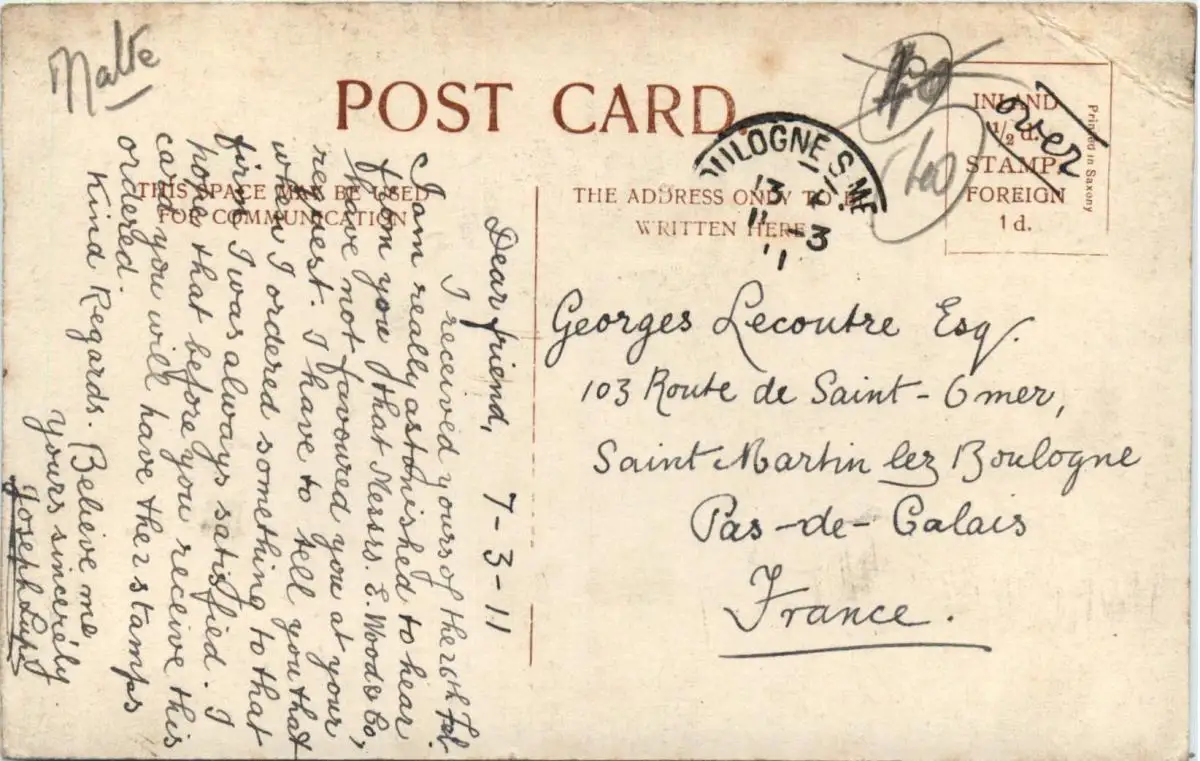 Malte
POST CARD.
THIS SPACE MAY BE USED
FOR COMMUNICATION
THE ADDRESS ONLY TO BE
WRITTEN HERE
INLAND
1/2 d.
STAMP
FOREIGN
1 d.
Printed in Saxony
over
BOULOGNE S MER
13
3
11
Dear friend, 7-3-11
I received yours of the 26th Feb.
I am really astonished to hear
from you that Messrs. E. Wood & Co,
have not favoured you at your
request. I have to tell you that
when I ordered something to that
firm I was always satisfied. I
hope that before you receive this
card you will have the stamps
ordered.
Kind Regards. Believe me
Yours sincerely
Joseph Lupi
Georges Lecoutre Esq.
103 Route de Saint-Omer,
Saint Martin lez Boulogne
Pas-de-Calais
France.